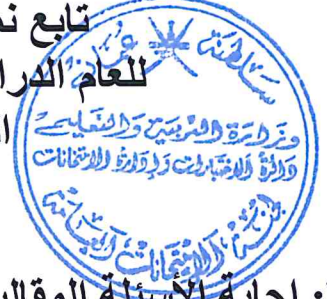 تابع نم
للعام الدرا
ا
سلطنة عمان
وزارة التربية والتعليم
دائرة الاختبارات وإدارة الامتحانات
لجنة الامتحانات العامة
إجابة الأسئلة المقالي